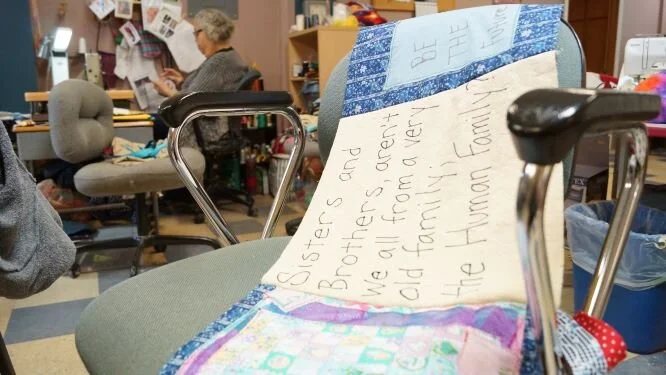 BE
THE
Sisters and
Brothers, aren't
we all from a very
old family;
the Human Family?